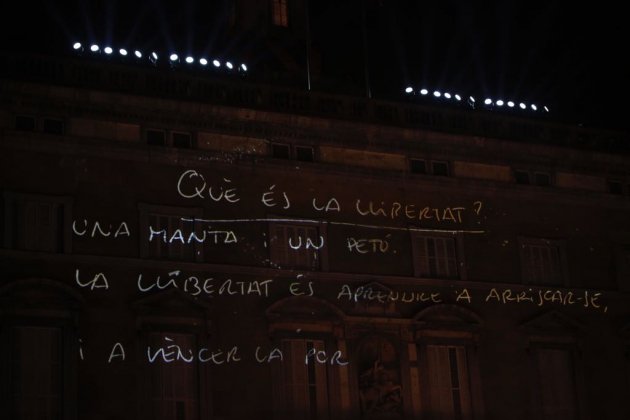 QUÈ ÉS LA LLIBERTAT?
UNA MANTA I UN PETÓ.
LA LLIBERTAT ÉS APRENDRE A ARRISCAR-SE,
I A VÈNCER LA POR